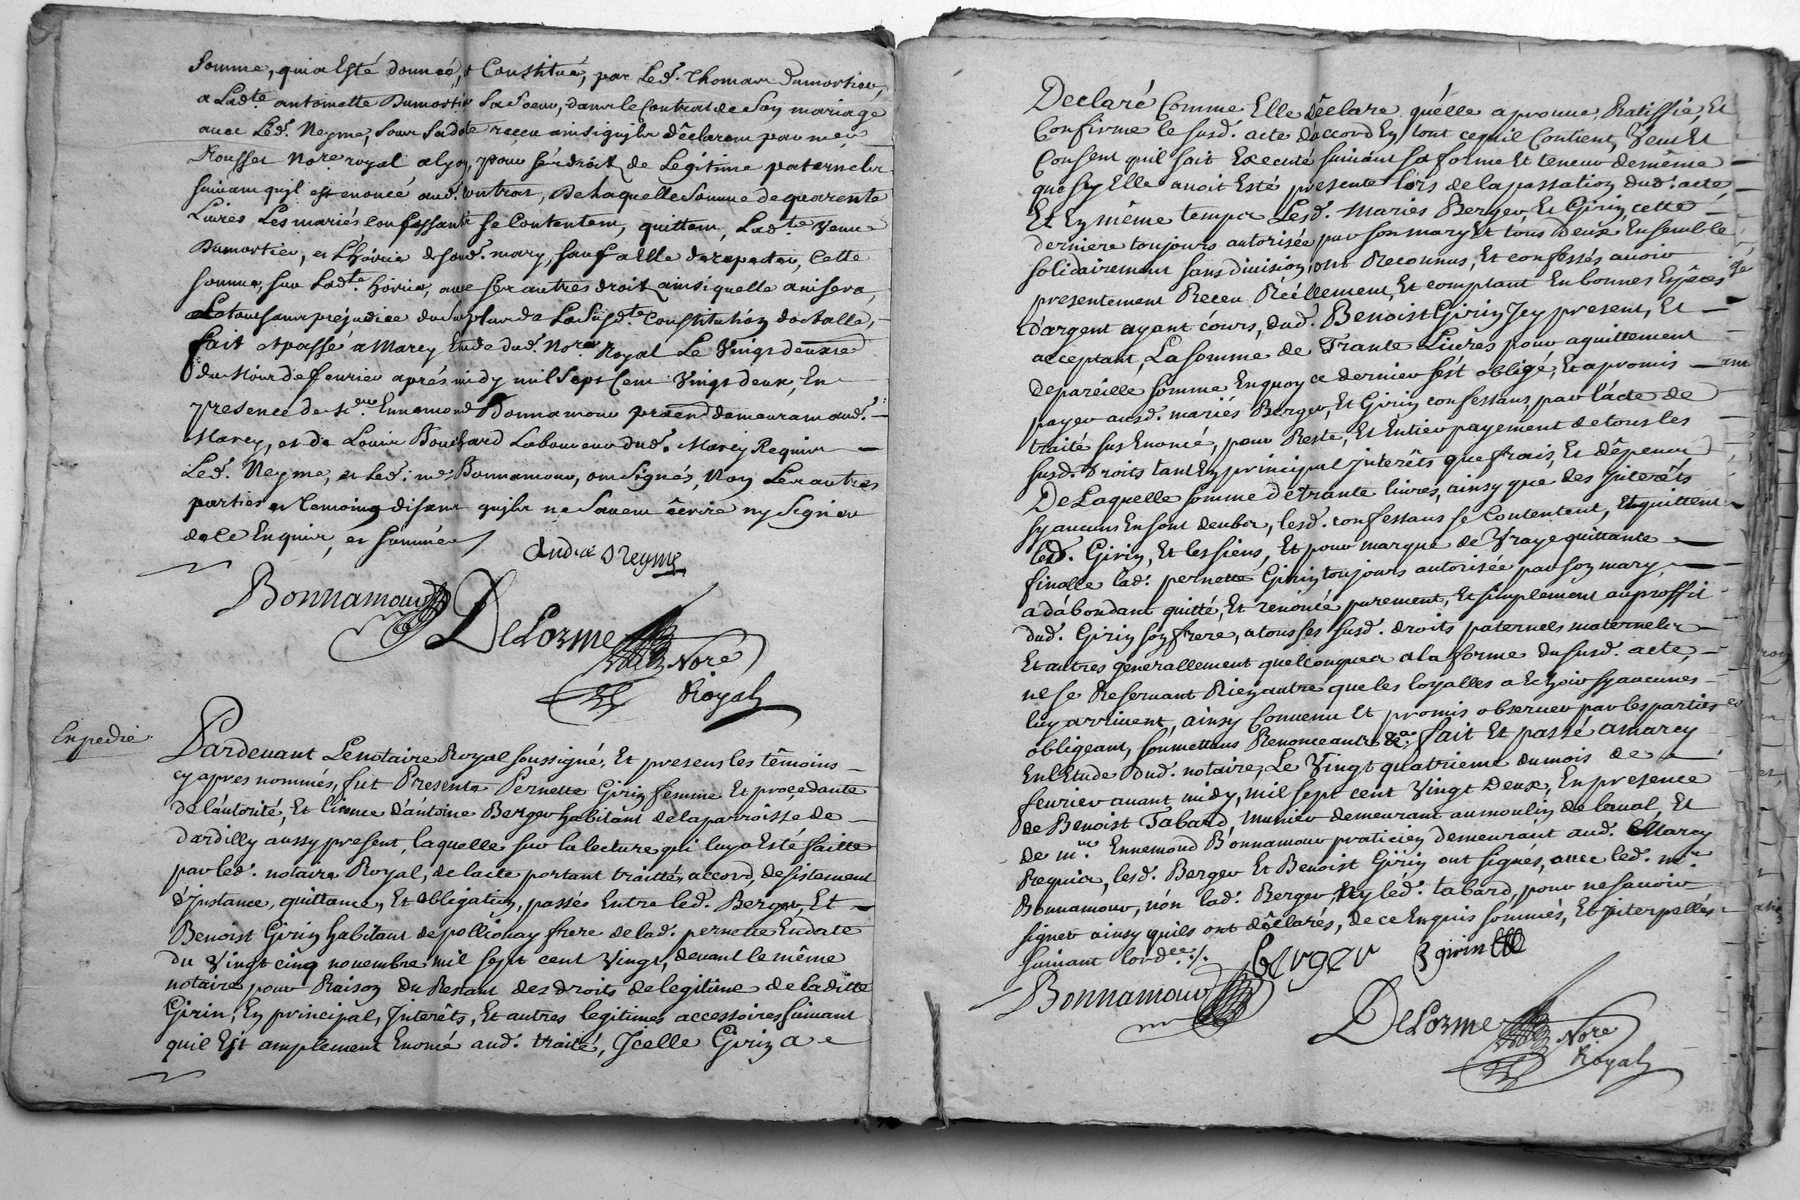 Somme, qui a Esté donnée, & Constitué, par Led. Thomas Dumortier,
a Ladte antoinette Dumortier Sa Soeur, dans le Contrat de Son mariage
avec Led. Neyme, Sous Sa dote reçeu ainsi quils dêclarent par me
Rousset Nore royal a lyon, pour Ses droit de Legitime paternels
suivant quil est enoncé aud. contrat, De Laquelle Somme de quarente
Livres Les mariés Confessants se Contentent, quittent, Ladte Veuve
Dumortier, et L'hoirie de Sond. mary, Sauf a Elle de repeter, Cette
Somme, sur Ladte hoirie, avec Ses autres droit ainsi quelle avisera,
Le tout sans prejudice du Surplus de La Susdte Constitution dotalle,
fait et passé a Marcy Etude dud. Nore Royal Le Vingt deuxie
du Mois de fevrier après midy mil Sept Cent Vingt deux, En
presence de sieur Ennemond Bonnamour praten demeurant aud.
Marcy, et de Louis Bouchard Laboureur dud. Marcy Requis
Led. Neyme, et Led. me Bonnamour, ont Signés, Non Les autres
parties et temoing disant quils ne Savent êcrire ny Signer
de Ce Enquis, et Sommés
André Neyme
Bonnamour
DeLorme
Nore
Royal
Expedié
Pardevant Le notaire Royal soussigné, Et presens les têmoins
cy apres nommés, fut Presente Pernette Girin femme Et proçedante
de l'autorité, Et licence d'antoine Berger habitant de la parroisse de
dardilly aussy present, laquelle sur la lecture qui luy a Esté faitte
par led. notaire Royal, de l'acte portant traitté, accord, desistement
d'Instance, quittance, Et obligation, passés Entre led. Berger, Et
Benoist Girin habitant de pollionay frere de lad. pernette En date
du Vingt cinq novembre mil sept cent Vingt, devant le même
notaire pour Raison du Restant des droits de legitime de laditte
Girin, En principal, Interets, Et autres legitimes accessoires suivant
quil Est amplement Enoncé aud. traité, Icelle Girin a
Declaré Comme Elle dêclare, quélle aprouve, Ratiffie, Et
Confirme le susd. acte d'accord En tout ce quil Contient, Veut Et
Consent quil soit Executé suivant sa forme Et teneur de même
que sy Elle avoit Esté presente lors de la passation dud. acte,
Et En même temps Lesd. Mariés Berger, Et Girin, cette
derniere toujours autorisée par son mary Et tous deux Ensemble
solidairement sans division, ont Reconnus, Et confessés avoir
presentement Receu Réellement, Et comptant En bonnes Espêces
d'argent ayant cours, dud. Benoist Girin Icy present, Et
acceptant, La somme de Trante Livres pour aquittement
de paréille somme Enquoy ce dernier s'est obligé, Et a promis
payer ausd. mariés Berger, Et Girin confessans, par l'acte de
traité sus Enoncé, pour Reste, Et Entier payement de tous les
susd. Droits tant En principal Interêts que frais, Et dêpens
De Laquelle somme de trante livres, ainsy que des Interêts
sy aucuns En sont deubs, lesd. confessans se Contentent, Et quittent
led. Girin, Et les siens, Et pour marque de Vraye quittance
finalle lad. pernette Girin toujours autorisée par son mary,
a dabondant quitté, Et renoncé purement, Et simplement au proffit
dud. Girin son frere, a tous ses susd. droits paternels maternels
Et autres generallement quelconques a la forme du susd. acte,
ne se Reservant Rien autre que les loyalles a Echoir sy aucunes
luy arrivent, ainsy Convenu Et promis observer par les parties
obligeant, soumettans Renonceants &a. fait Et passé a marcy
En l'Etude dud. notaire, Le Vingt quatrieme du mois de
fevrier avant midy, mil sept cent Vingt Deux, En presence
de Benoist Tabard, Munier demeurant au moulin de laval, Et
de me. Ennemond Bonnamour praticien demeurant aud. Marcy
Requis, lesd. Berger Et Benoist Girin ont signés, avec led. me
Bonnamour, nón lad. Berger, Ny led. tabard, pour ne savoir
signer ainsy quils ont dêclarés, de ce Enquis sommés, Et Interpellés
suivant lordce.
Berger
B girin
Bonnamour
DeLorme
Nore
Royal